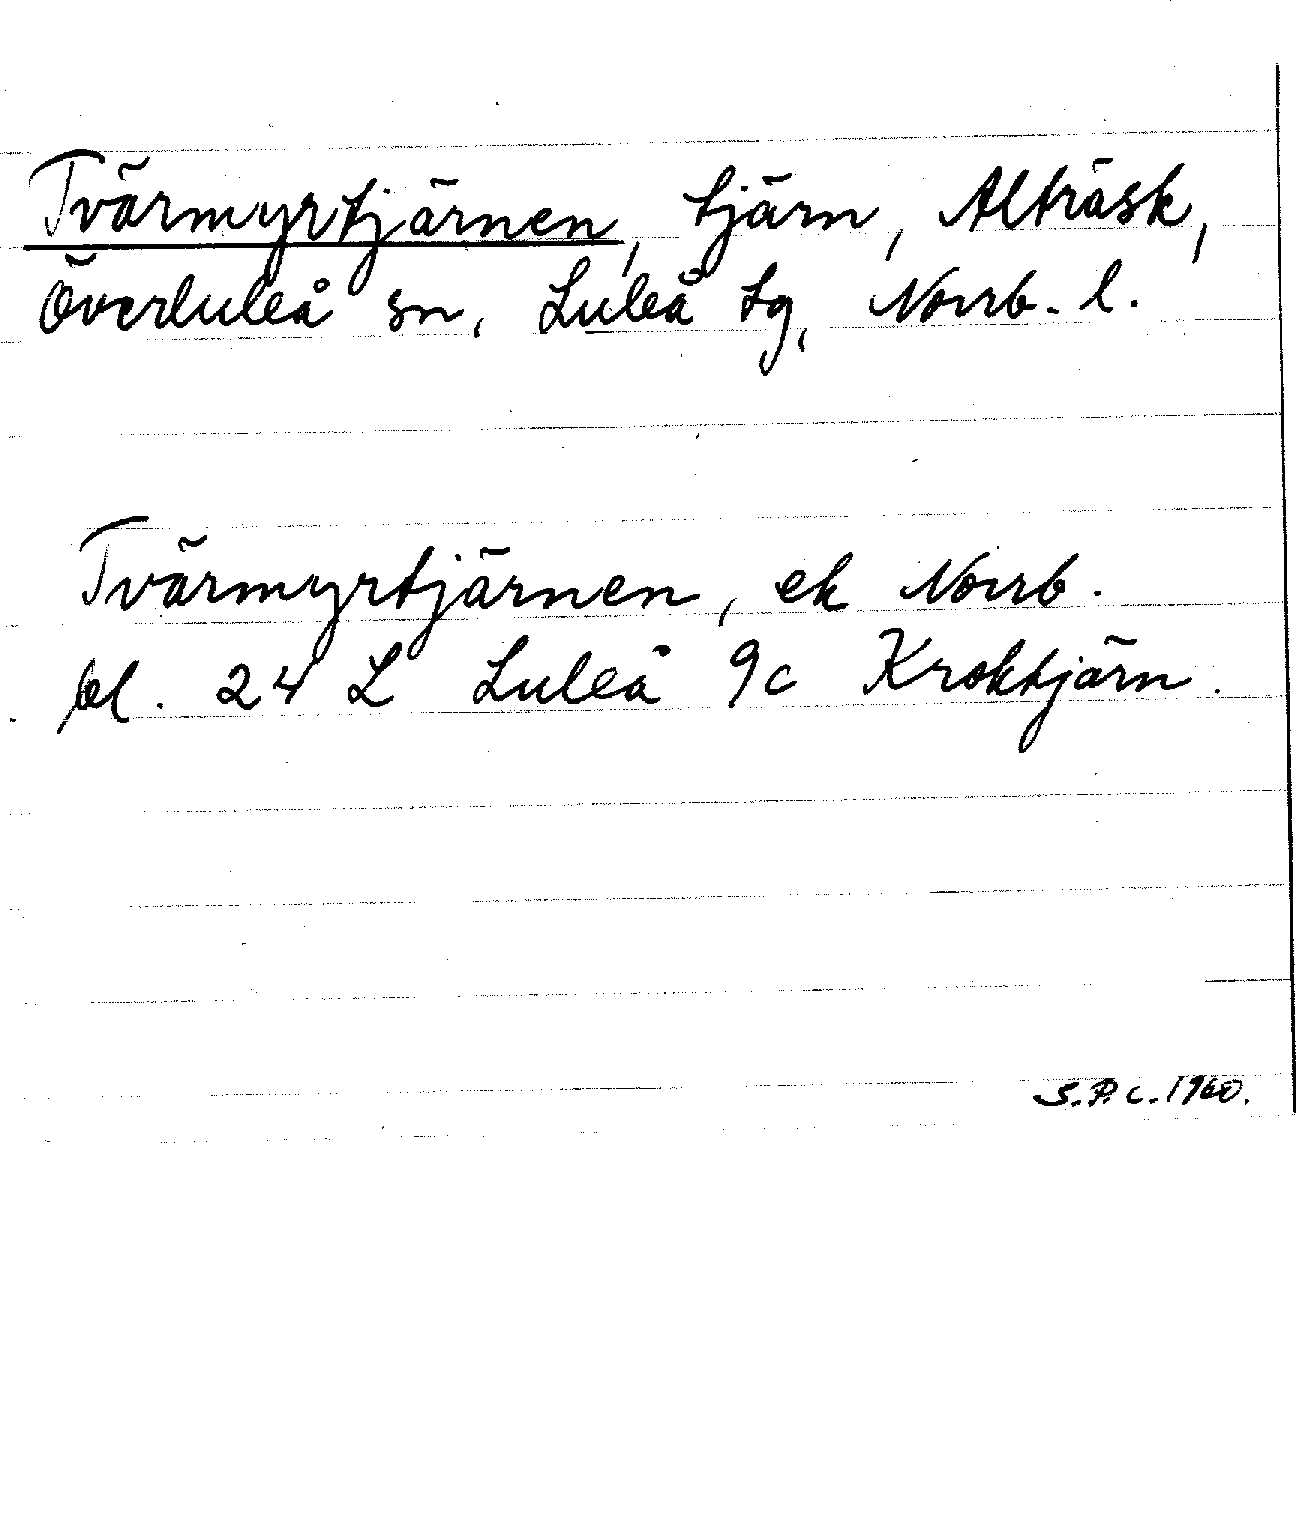 Tvärmyrtjärnen, tjärn, Alträsk,
Överluleå sn, Luleå tg, Norrb. l.
Tvärmyrtjärnen, ek Norrb.
bl. 24 L Luleå 9c Kroktjärn.
S.P.C. 1960.